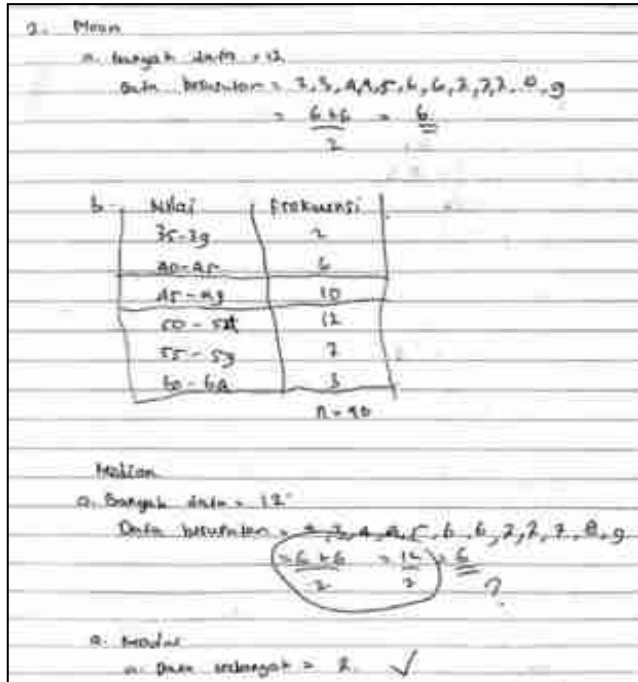 2. Mean
a. Banyak data = 12
Data berurutan = 3, 3, 4, 4, 5, 6, 6, 7, 7, 7, 8, 9
= 6+6 = 6
2
b. Nilai Frekuensi
35-39 2
40-45 6
45-49 10
50-54 12
55-59 7
60-64 3
n = 40
Median
a. Banyak data = 12
Data berurutan = 4, 4, 5, 6, 6, 7, 7, 7, 8, 9
= 6+6 = 12 = 6
2 2 ?
a. Modus
a. Data = 7. ✓